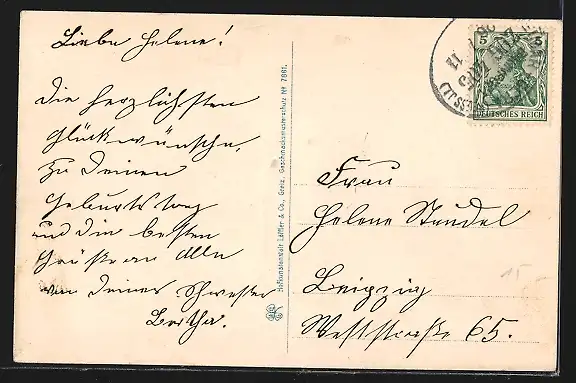 Liebe Helene!
Die herzlichsten
Glückwünsche,
zu Deinem
Geburtstag
und die besten
Grüße an Alle
von Deiner Schwester
Bertha.
Reliefkunstanstalt Löffler & Co., Greiz, Geschmacksmusterschutz No 7861.
5 5
DEUTSCHES REICH
Frau
Helene Steudel
Leipzig
Weststraße 65.
15.-